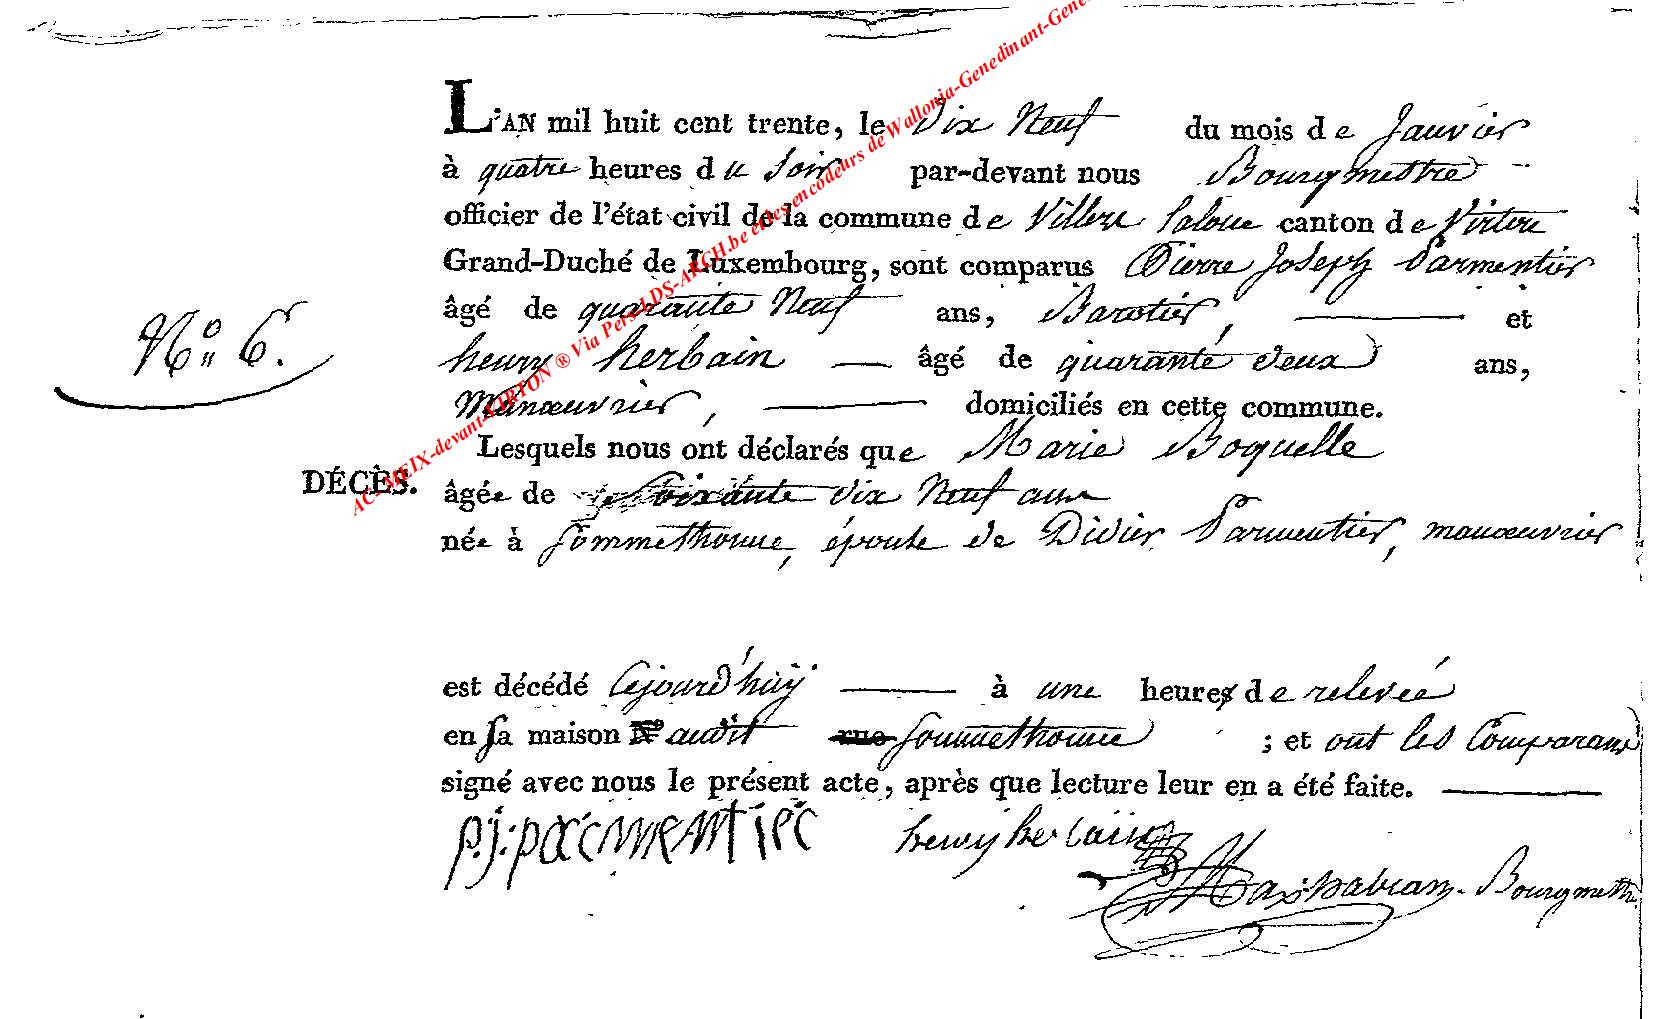 L'AN mil huit cent trente, le dix Neuf du mois de Janvier
à quatre heures du Soir par-devant nous Bourgmettre
officier de l'état civil de la commune de Villers laloue canton de Virton
Grand-Duché de Luxembourg, sont comparus Pierre Joseph Parmentier
âgé de quarante Neuf ans, et
N° 6.
henry herbain âgé de quarante deux ans,
Manœuvrier, domiciliés en cette commune.
Lesquels nous ont déclarés que Marie Boquelle
DÉCÈS.
âgée de Soixante dix Neuf ans
née à Sommethonne, épouse de Didier Parmentier, manœuvrier
est décédé cejourd'huy à une heures de relevée
en sa maison N° audit rue Sommethonne ; et ont les Comparans
signé avec nous le présent acte, après que lecture leur en a été faite.
p.j. parmentier henry herbain
Bourgmettre
AC-MEIX-devant-VIRTON ® Via Pers-LDS-ARCH.be et les encodeurs de Wallonia-Genedinant-Gene